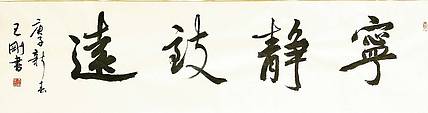 寧靜致遠
庚子新春
王剛書